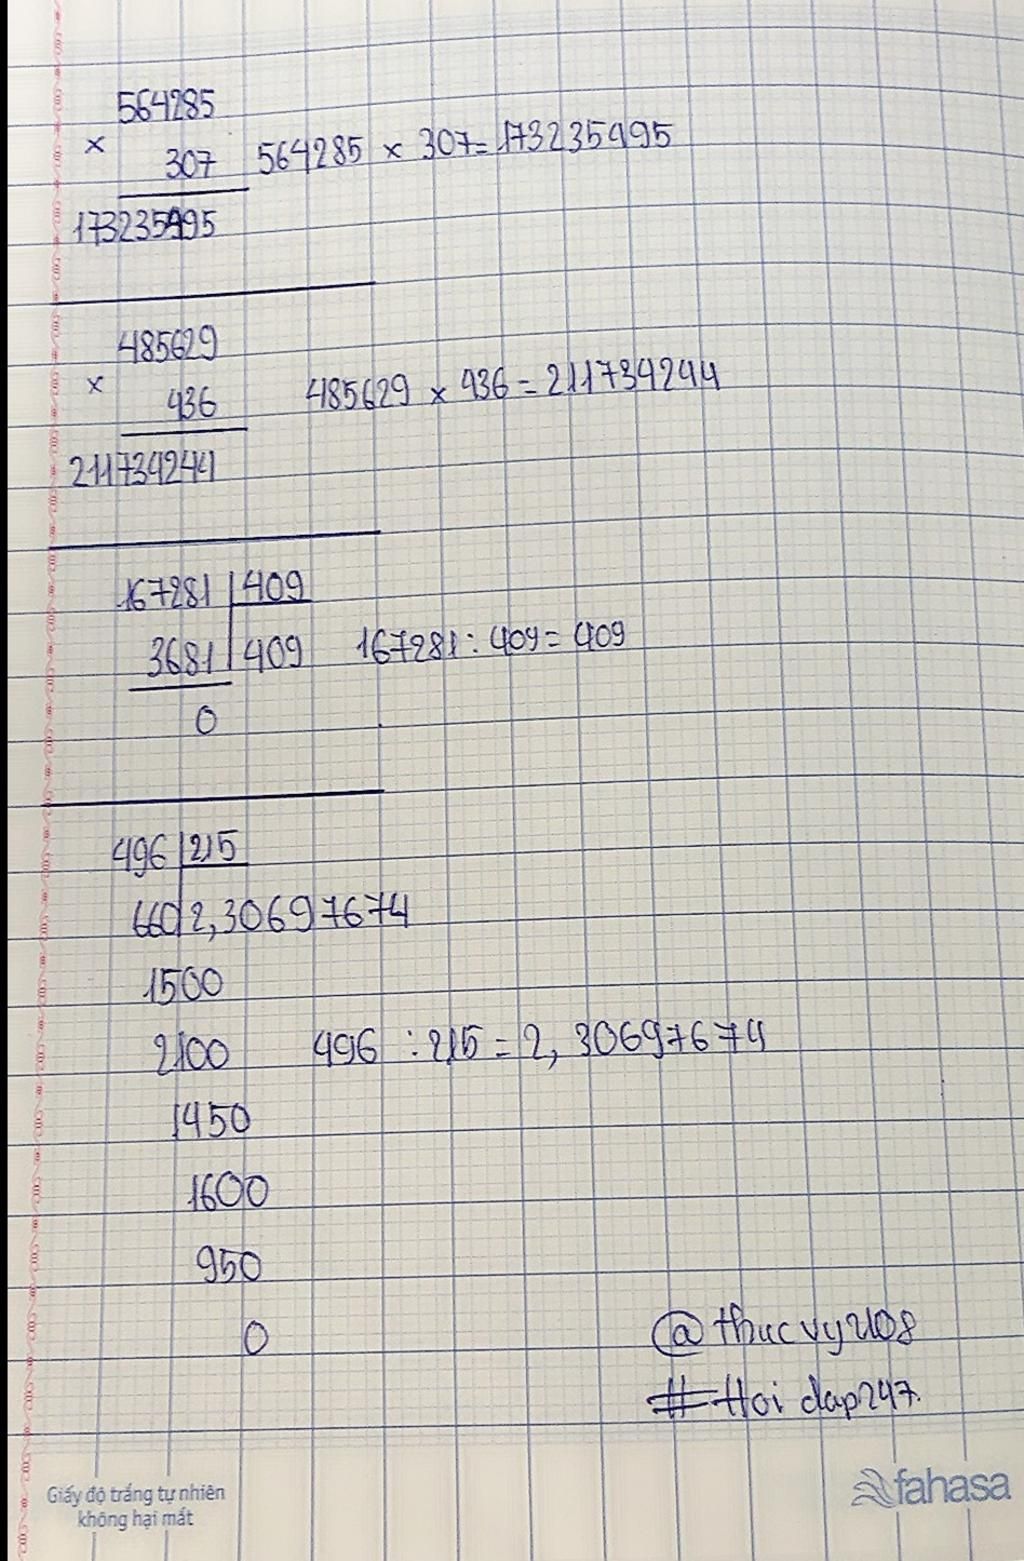 564285
× 307 564285 × 307=173235495
173235495
485629
× 436 485629 × 436 = 211734244
211734244
167281 409
3681 409 167281 : 409 = 409
0
496 215
660 2,30697674
1500
2100 496 : 215 = 2, 30697674
1450
1600
950
0
@thucvy2108
#Hoi dap247.
Giấy độ trắng tự nhiên
không hại mắt
fahasa